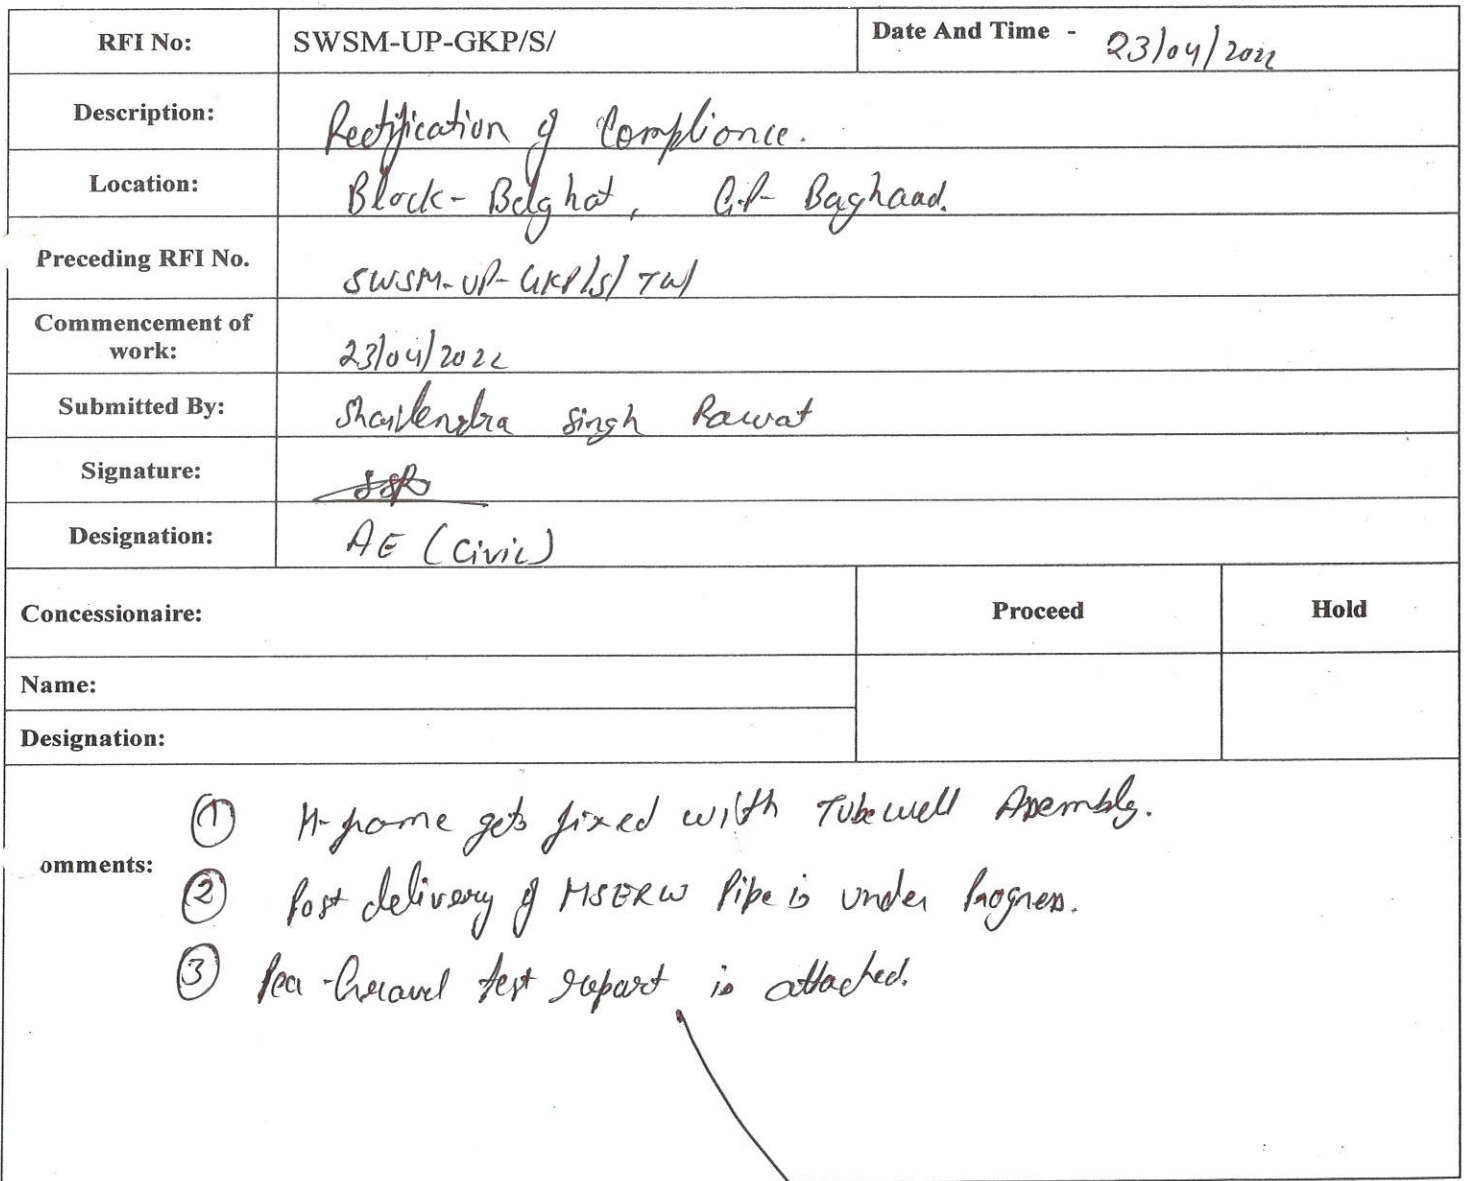 RFI No: SWSM-UP-GKP/S/ Date And Time - 23/04/2022
Description: Rectification of Complionce.
Location: Block- Belghat, G.P- Baghaad.
Preceding RFI No. SWSM-UP-GKP/S/TW/
Commencement of
work: 23/04/2022
Submitted By: Shailendra Singh Rawat
Signature: SSR
Designation: AE (Civil)
Concessionaire: Proceed Hold
Name:
Designation:
① H-frame gets fixed with Tubewell Assembly.
omments:
② Post delivery of MSERW Pipe is under Progress.
③ Pea-Gravel test report is attached.